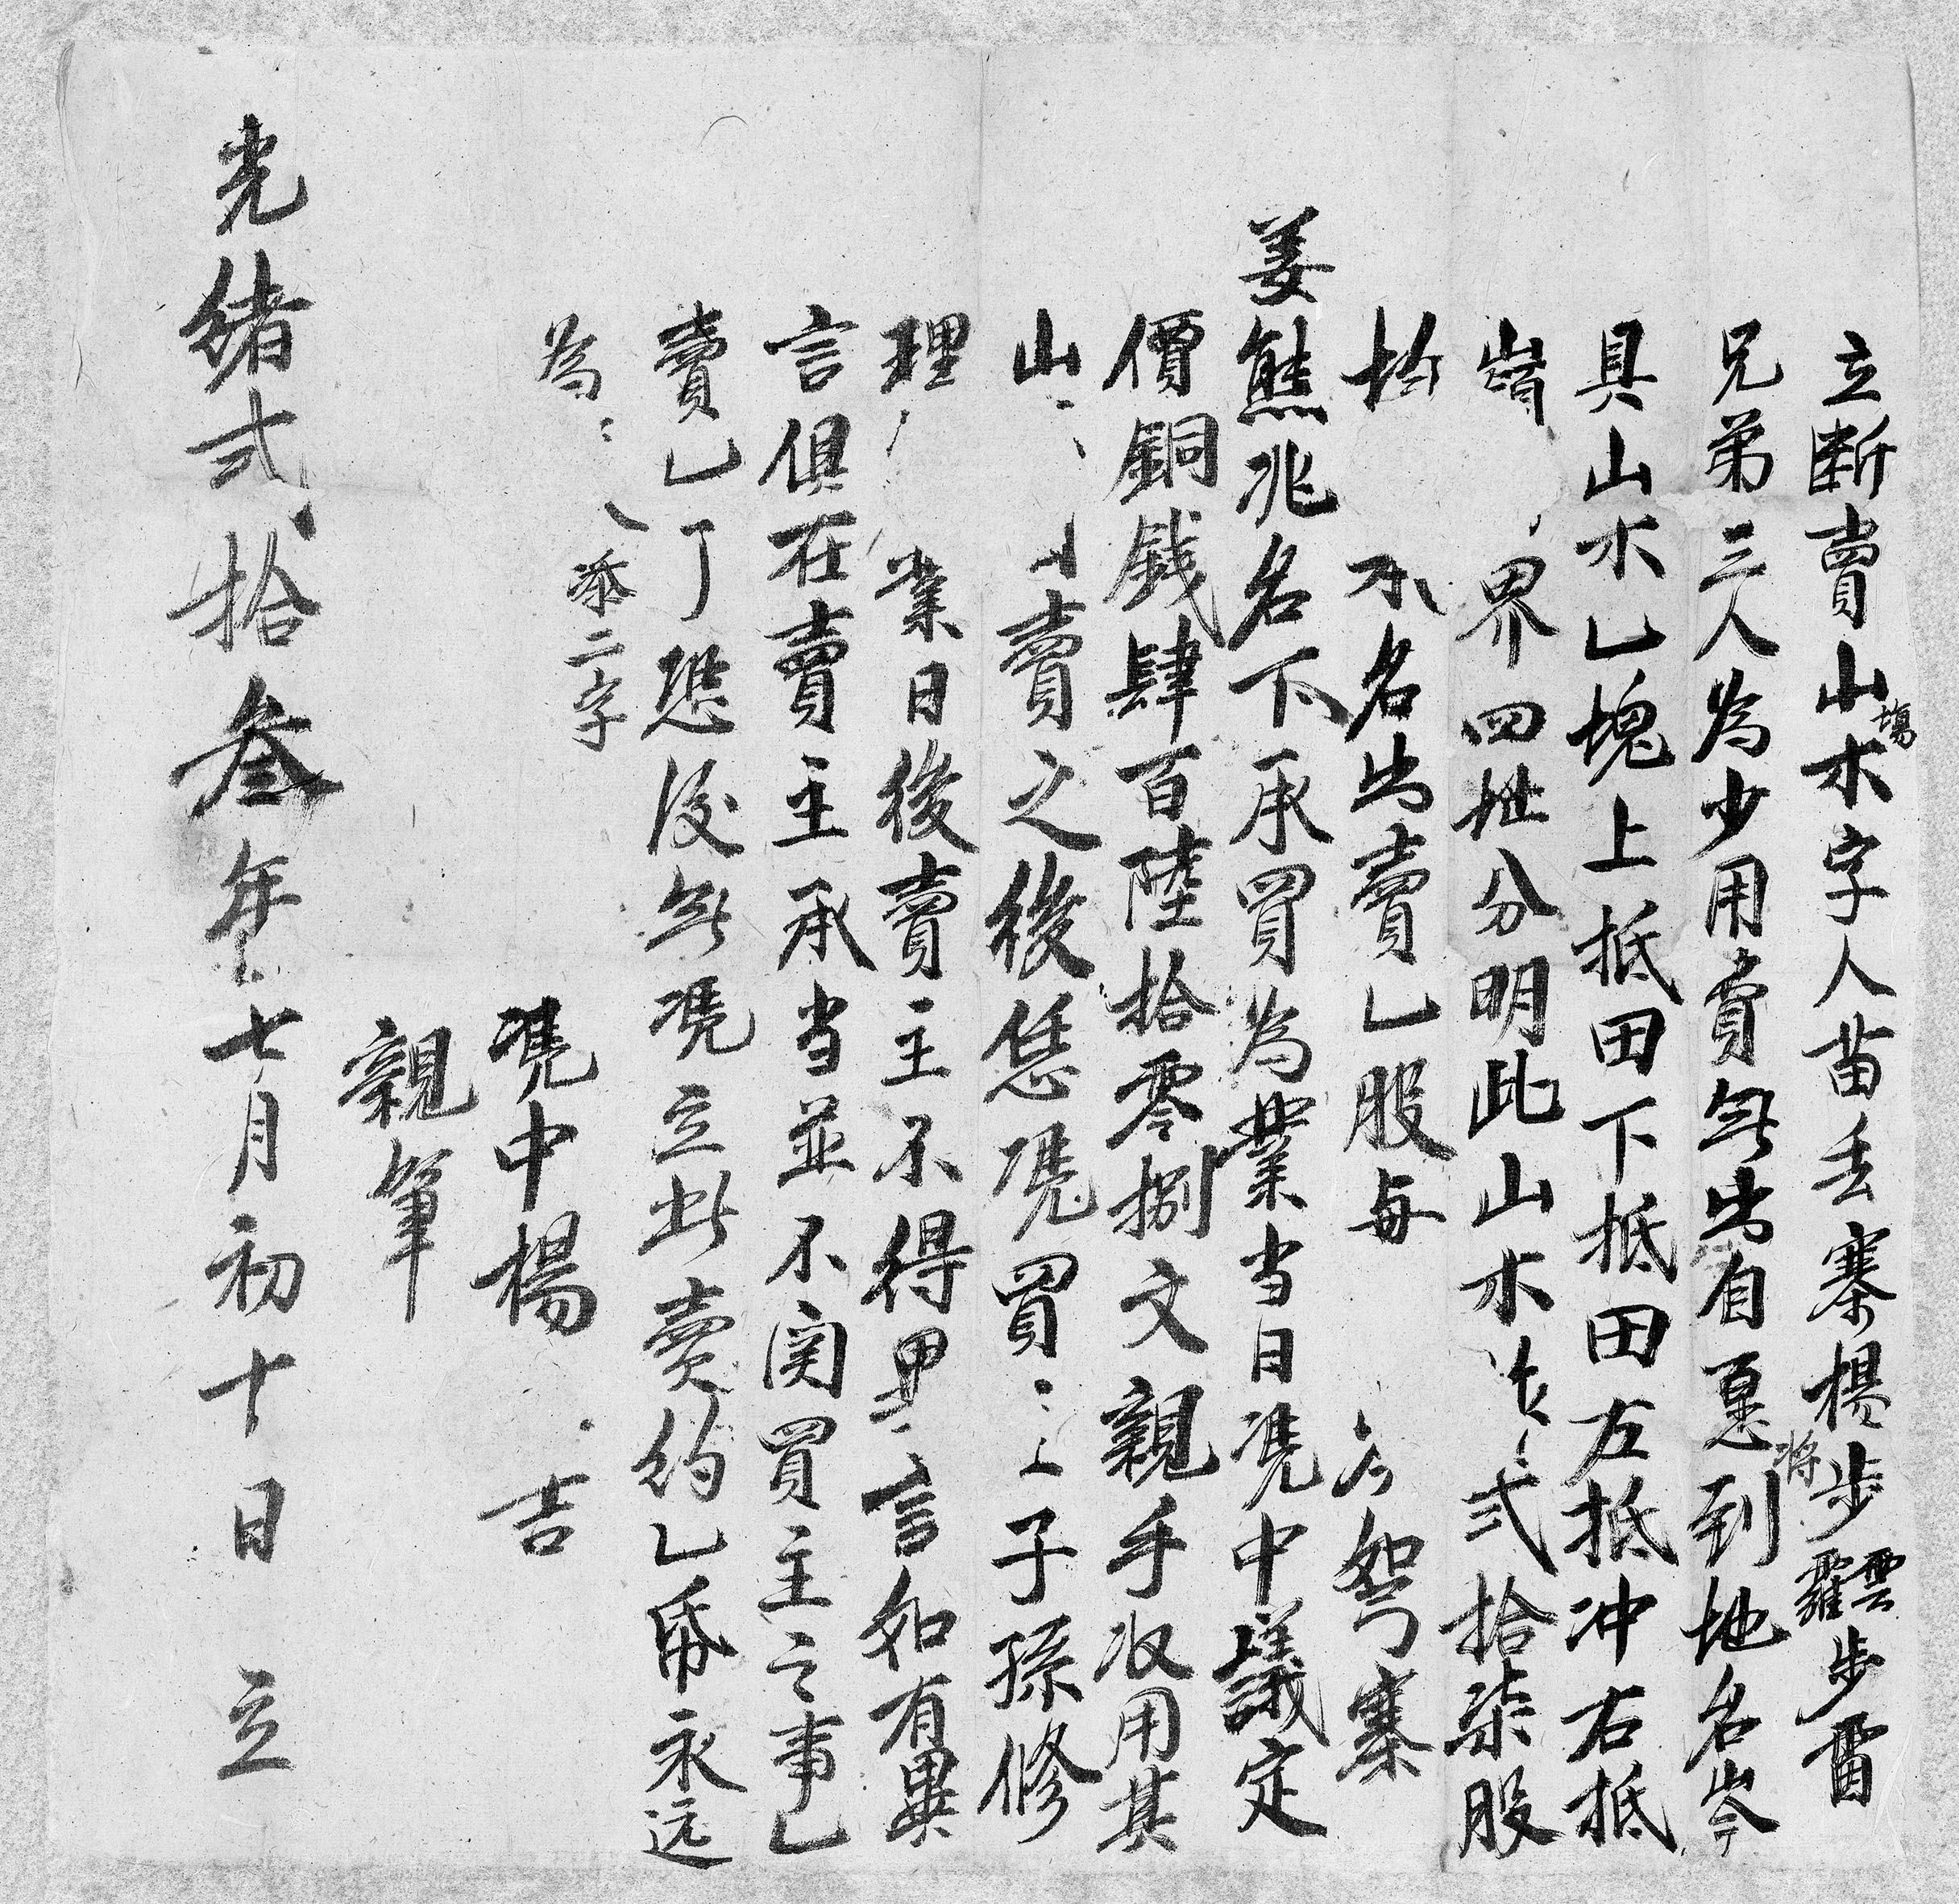 立断賣山塲木字人苗丢寨楊步雲步霾步雷
兄弟三人為少用費無出自愿將到地名岑
具山木乚塊上抵田下抵田左抵冲右抵
界四抵分明此山木弍拾柒股
木名出賣乚股每 寨
姜熊兆名下承買為業当日凴中議定
價銅錢肆百陸拾零捌文親手収用其
山 賣之後恁凴買 子孫修
理 業日後賣主不得異言如有異
言俱在賣主承当並不関買主之事乚
賣乚了恐後無凴立此賣約乚帋永远
為
添二字
凴中楊 吉
親筆
光緒弍拾叁年七月初十日 立